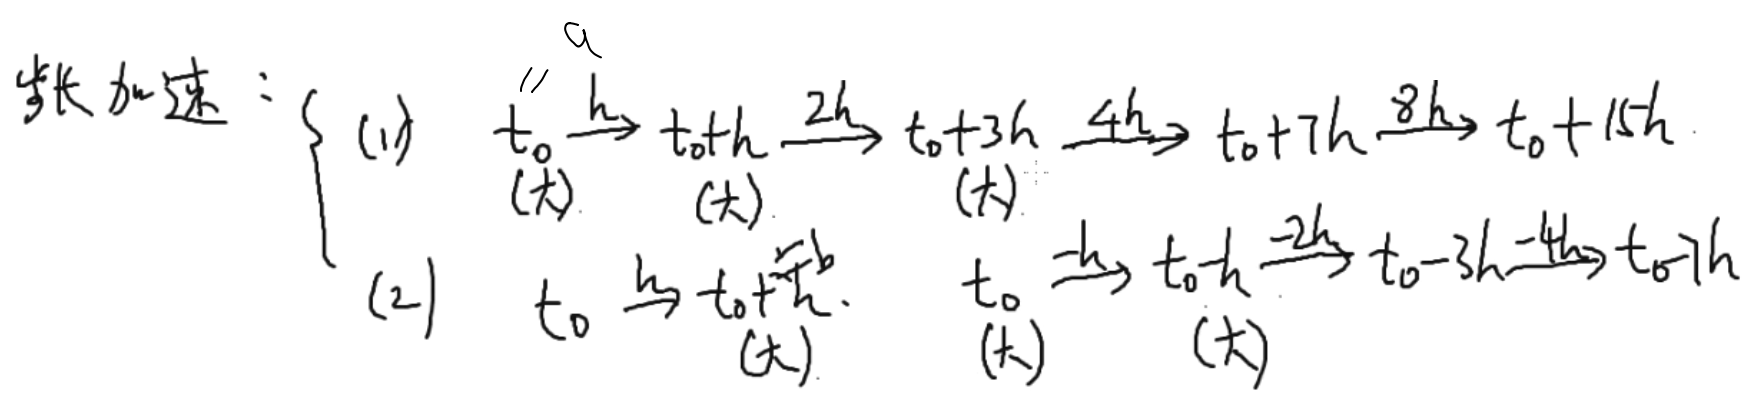 a
步长加速: { (1) t₀ →(h) t₀+h →(2h) t₀+3h →(4h) t₀+7h →(8h) t₀+15h.
(大) (大) (大)
(2) t₀ →(h) t₀+h. t₀ →(-h) t₀-h →(-2h) t₀-3h →(-4h) t₀-7h
(大) (大) (大)